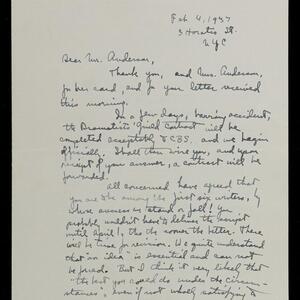 Feb 4, 1937
3 Horatio St.
NYC
Dear Mr. Anderson,
Thank you, and Mrs. Anderson,
for her card, and for your letter received
this morning.
In a few days, barring accident,
the Dramatists' Guild contract will be
completed acceptably to CBS, and we begin
officially. I shall then wire you, and upon
receipt of your answer, a contract will be
forwarded.
All concerned have agreed that
you are to be among the first six writers, by
whose success we stand or fall! You
probably wouldn't have to deliver the script
until April 1, tho the sooner the better. There
will be time for revision. We quite understand
that "an idea" is essential and can not
be forced. But I think it very likely that
"the best you could do under the circum-
stances," even if not wholly satisfying to